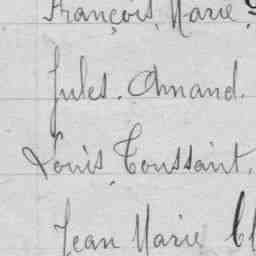 François, Marie,
Jules. Amand.
Louis Toussaint.
Jean Marie